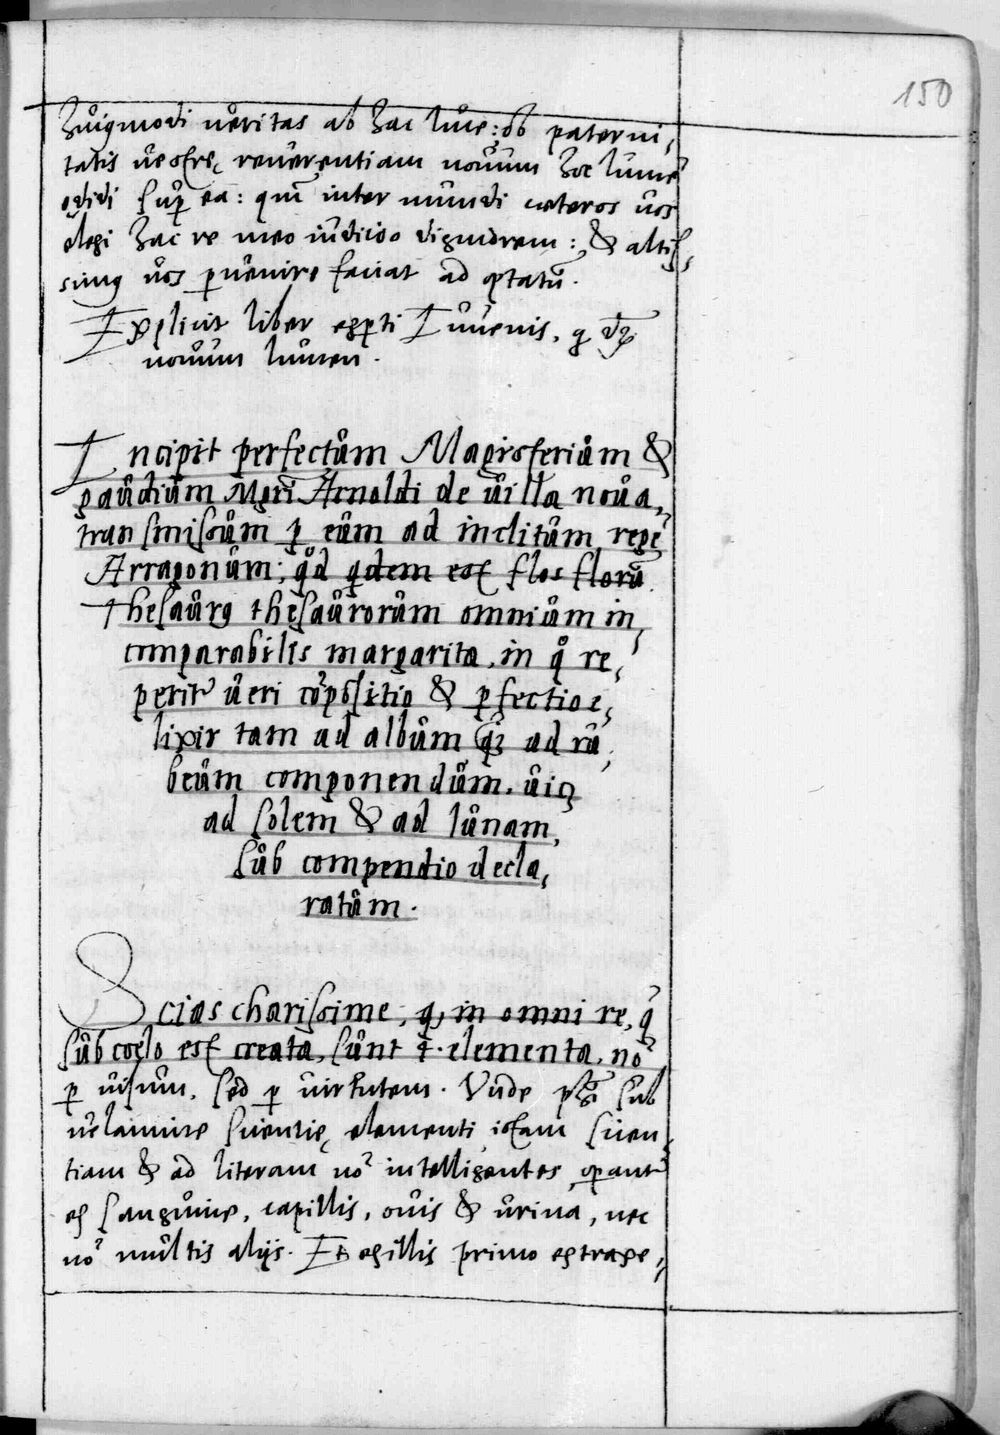 150
huiusmodi veritas ab hac luce: ob paterni,
tatis vestrę reverentiam novum hoc lumē
edidi sup ea: quū inter mundi cæteros vos
elegi hac re meo iuditio digniorem: & altis,
simus vos pvenire faciat ad optatū.
Explicit liber expti Iuvenis, q dr
novum lumen.
Incipit perfectům Magisteriům &
gaůdiům Mgri Arnoldi de ůilla noůa,
transmissům p eům ad inclitům regē
Arragonům; qd qdem est flos florū
thesaůrus thesaůrorům omniům in,
comparabilis margarita, in q re,
peritr ůeri cōpositio & pfectio e,
lixir tam ad albům q ad rů,
beům componendům, ůiꝫ
ad solem & ad lůnam,
sůb compendio decla,
ratům.
Scias charissime, q in omni re, q
sůb coelo est creata, sůnt 4. elementa, nō
p visum, sed p virtutem. Unde phi sub
velamine scientię elementi istam scien,
tiam & ad literam nō intelligentes, opantr
ex sanguine, capillis, ovis & urina, nec
nō multis alijs. Et ex illis primo extraxe,